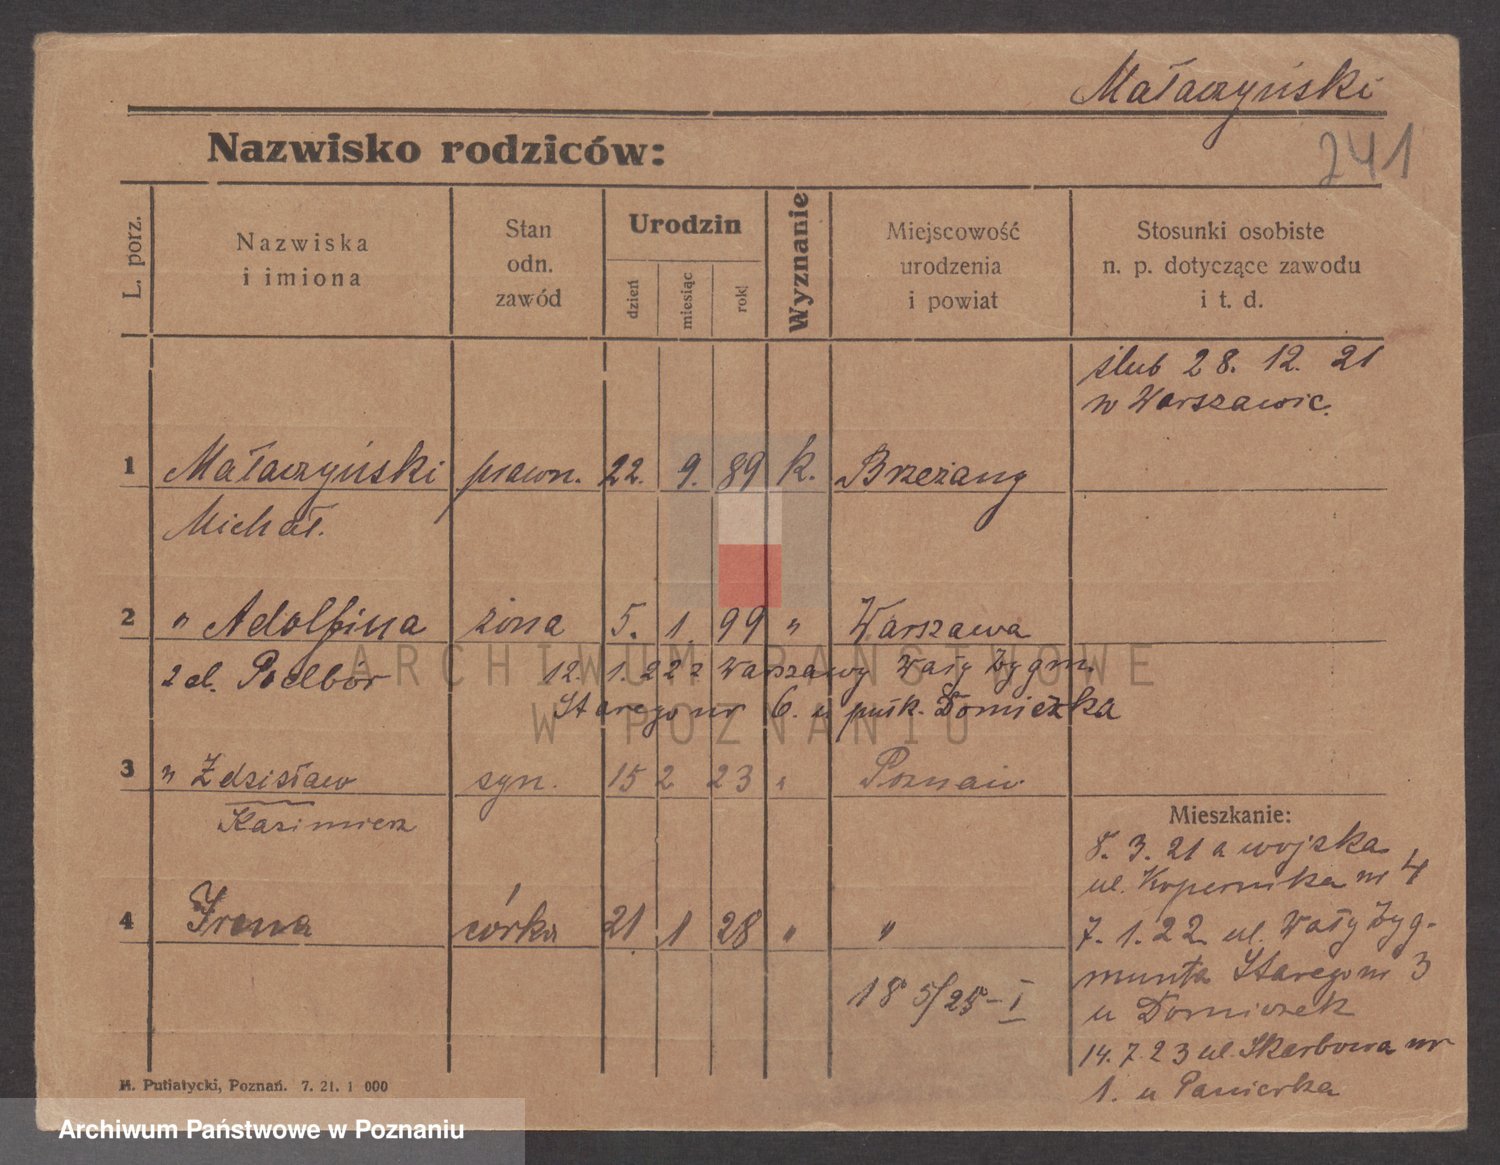 Małaczyński
241
Nazwisko rodziców:
L. porz.
Nazwiska
i imiona
Stan
odn.
zawód
Urodzin
dzień
miesiąc
rok
Wyznanie
Miejscowość
urodzenia
i powiat
Stosunki osobiste
n. p. dotyczące zawodu
i t. d.
ślub 28. 12. 21
w Warszawie.
1 Małaczyński prawn. 22. 9. 89 k. Brzeżany
Michał.
2 " Adolfina żona 5. 1. 99 " Warszawa
z d. Podbór 12. 1. 22 z Warszawy Wały Zygm.
Starego nr 6. u pułk. Domiczka
3 " Zdzisław syn. 15 2 23 " Poznań
Kazimierz
Mieszkanie:
8. 3. 21 z wojska
ul. Kopernika nr 4
4 Irena córka 21 1 28 " "
7. 1. 22 ul. Wały Zyg-
munta Starego nr 3
u Domiczek
18 5/25 - I
14. 7. 23 ul. Skarbowa nr
1. u Panierka
H. Putiatycki, Poznań. 7. 21. 1 000
ARCHIWUM PAŃSTWOWE
W POZNANIU
Archiwum Państwowe w Poznaniu